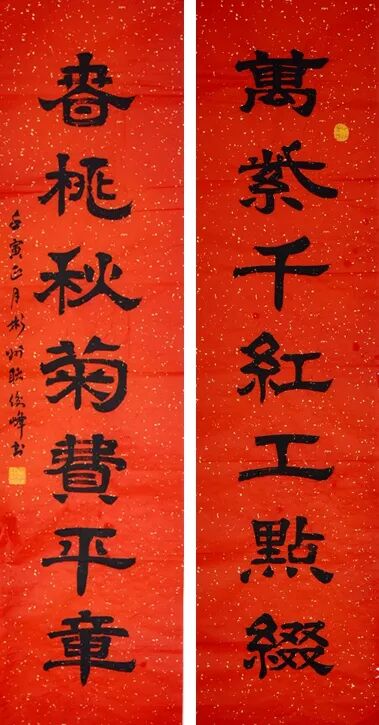 萬紫千紅工點綴
春桃秋菊費平章
壬寅正月彬州耿俊峰書